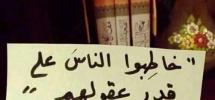 "خاطِبوا الناسَ على
قدر عقولهم"